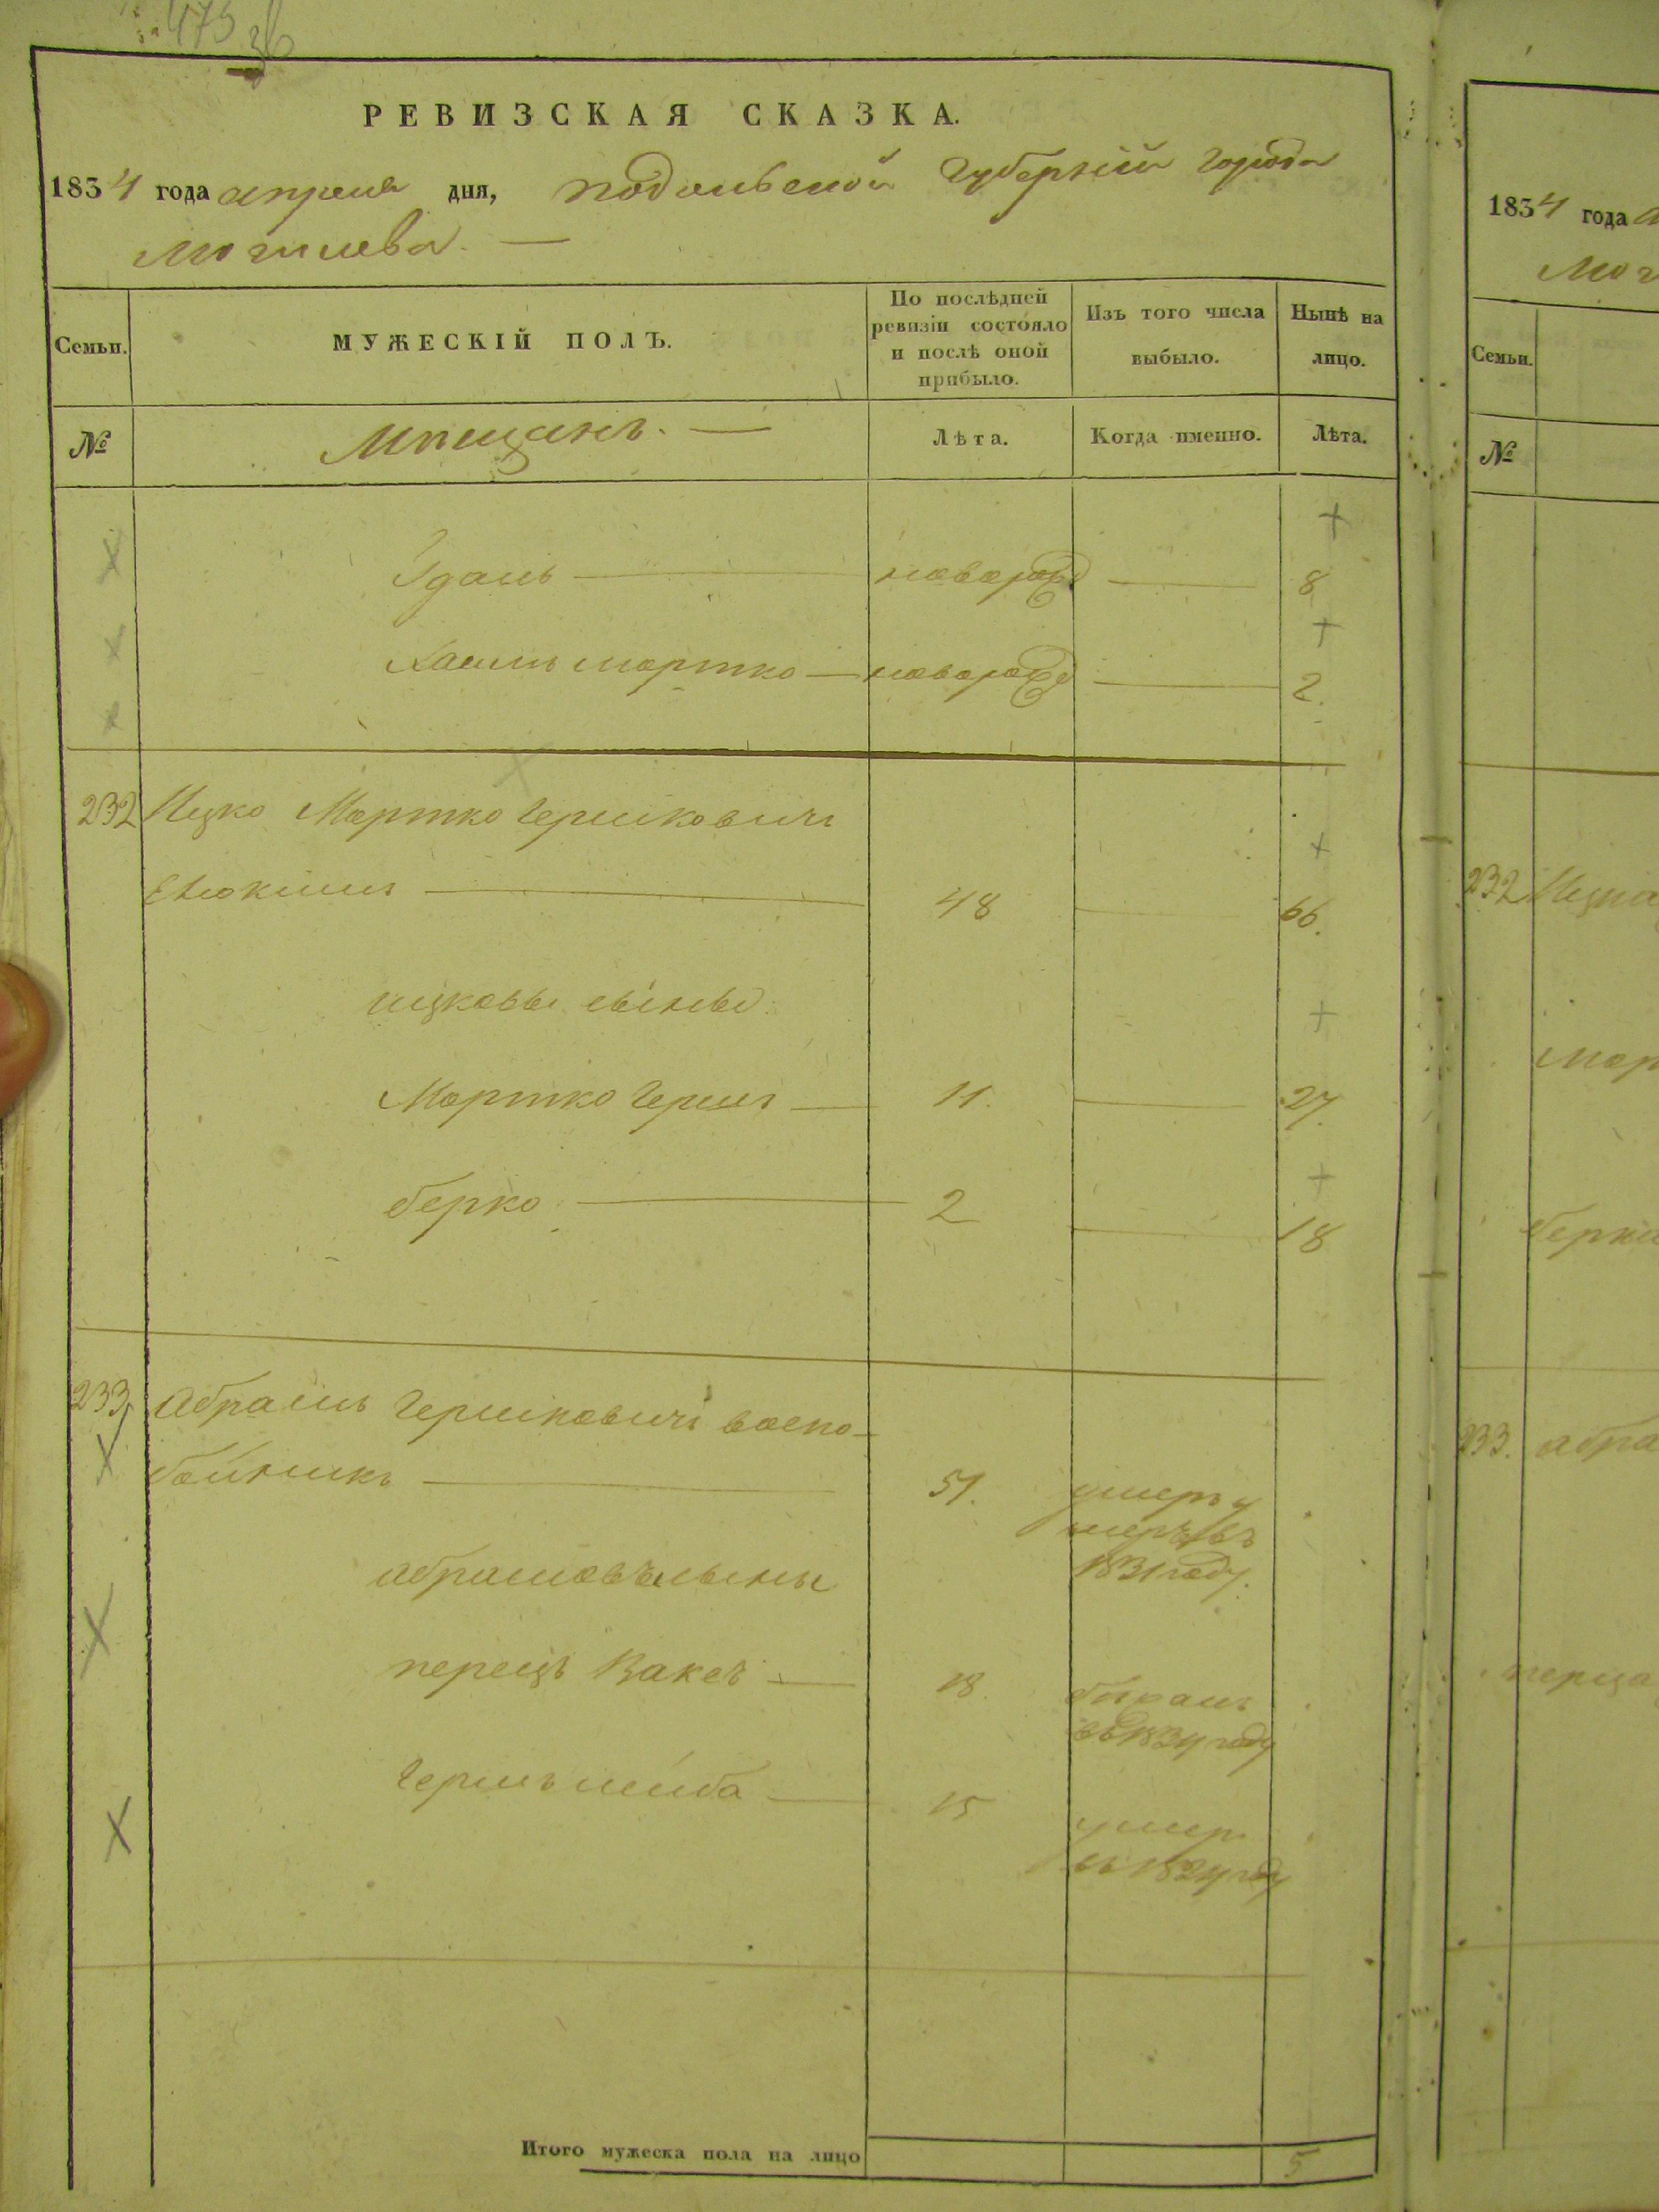 475
РЕВИЗСКАЯ СКАЗКА.
1834 года апреля дня, Подольской Губернiи города
Могилева. —
Семьи.
МУЖЕСКІЙ ПОЛЪ.
По послѣдней ревизіи состояло и послѣ оной прибыло.
Изъ того числа выбыло.
Нынѣ на лицо.
№
Мѣщанъ. —
Лѣта.
Когда именно.
Лѣта.
Удаль — новорожд — 8
Хаимъ мортко — новорожд — 2.
232 Ицко Мортко Гершковичъ
— 48 — 66.
ицковы сыновья
Мортко Гершъ — 11. — 27.
берко — 2 — 18
233. Абрамъ Гершковичъ воско-
бойникъ — 51. умеръ
въ
1831 году.
абрамовы сыны
перецъ Вакеъ — 18.
въ 1834 году
Гершъ лейба — 15
умер
въ 1824 году
Итого мужеска пола на лицо 5
1834 года
Мог
Семьи.
№
232 Ицка
Мор
берка
233. абра
перца